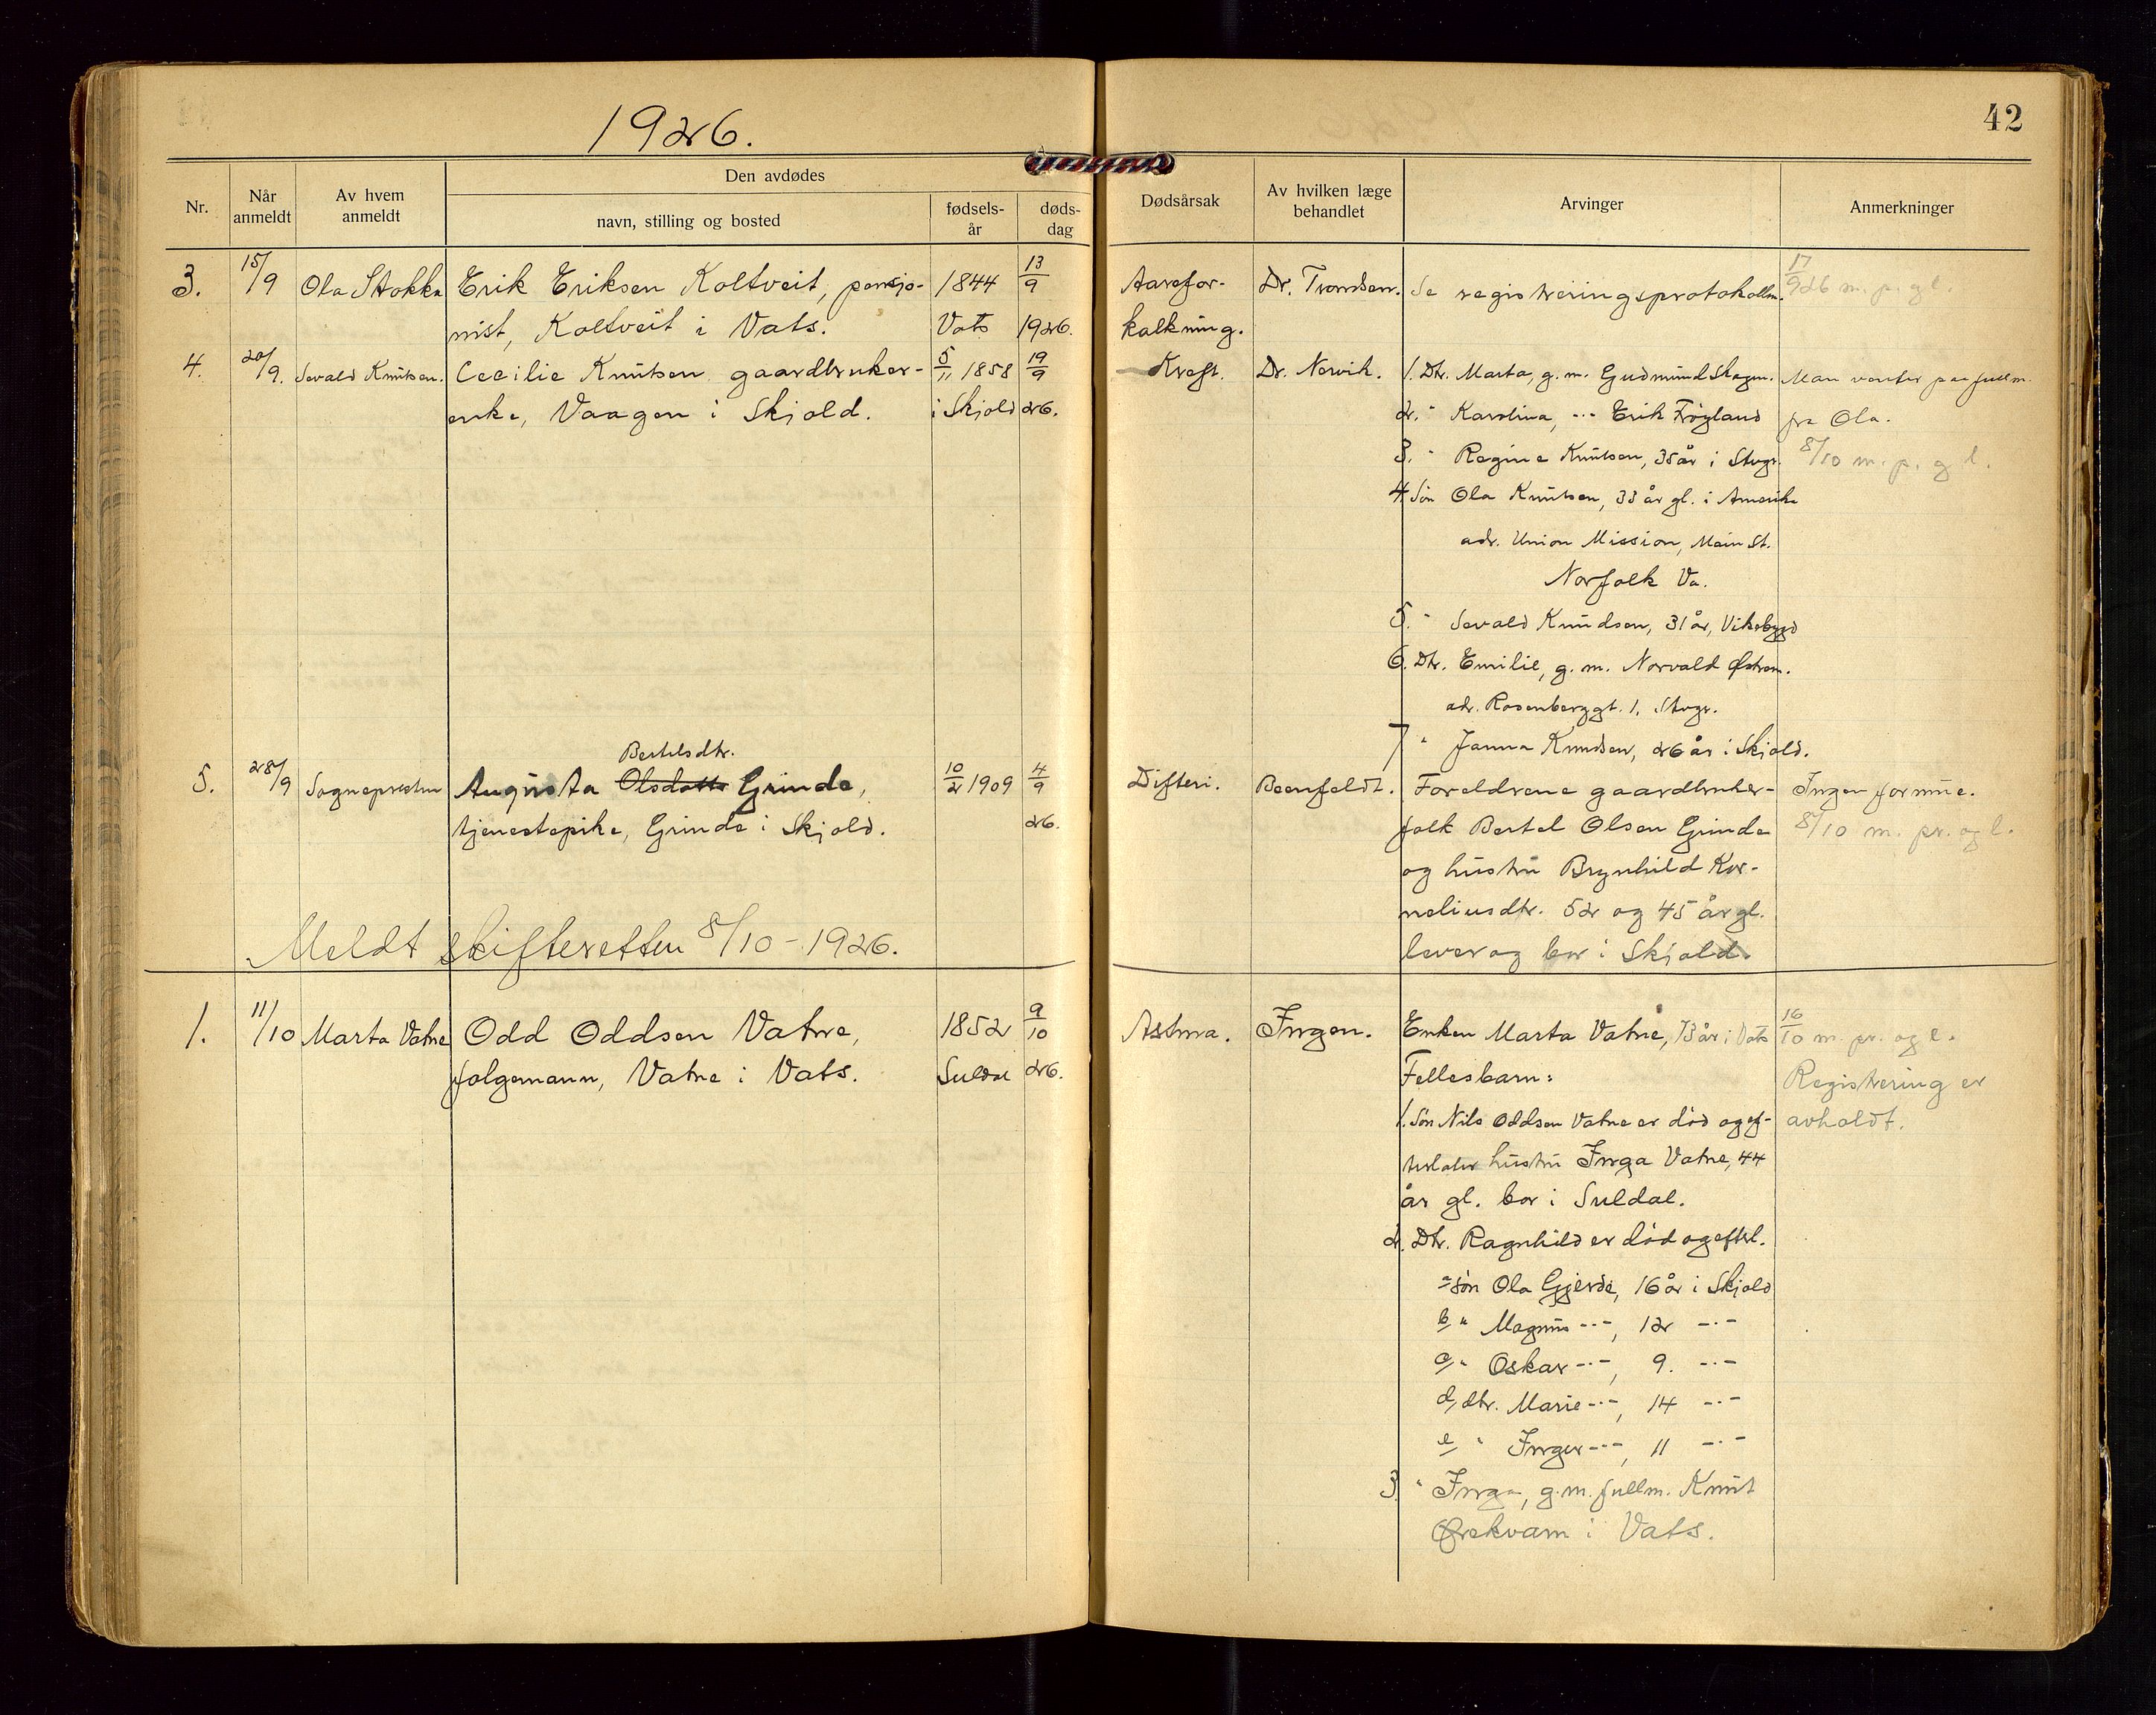 1926.
42
Nr.
Når anmeldt
Av hvem anmeldt
Den avdødes
navn, stilling og bosted
fødsels-år
døds-dag
Dødsårsak
Av hvilken læge behandlet
Arvinger
Anmerkninger
3. 15/9 Ola Stokka Erik Eriksen Koltveit, pensjo- 1844 13/9 Aarefor- Dr. Trondsen. Se registreringsprotokollen. 17/9 26 m. p. g l.
nist, Koltveit i Vats. Vats 1926. kalkning.
4. 20/9. Sevald Knutsen. Cecilie Knutsen gaardbruker- 5/11 1858 19/9 Kreft. Dr. Norvik. 1. Dtr. Marta, g. m. Gudmund Skagen. Man venter paa fullm.
enke, Vaagen i Skjold. i Skjold 26. 2. " Karolina, -"- Erik Frøyland fra Ola.
3. " Regine Knutsen, 35 år i Stvgr. 8/10 m. p. g l.
4. Søn Ola Knutsen, 33 år gl. i Amerika
adr. Union Mission, Main St.
Norfolk Va.
5. " Sevald Knudsen, 31 år, Vikebygd
6. Dtr. Emilie, g. m. Norvald Østrem.
adr. Rosenberggt. 1. Stvgr.
7 " Janna Knudsen, 26 år i Skjold.
Bertelsdtr.
5. 28/9 Sognepresten Augusta Olsdatter Grinde, 10/2 1909 4/9 Difteri. Beenfeldt. Foreldrene gaardbruker- Ingen formue.
tjenestepike, Grinde i Skjold. 26. folk Bertel Olsen Grinde 8/10 m. pr. og l.
og hustru Brynhild Kor-
neliusdtr. 52 og 45 år gl.
Meldt skifteretten 8/10 - 1926. lever og bor i Skjold.
1. 11/10 Marta Vatne Odd Oddsen Vatne, 1852 9/10 Astma. Ingen. Enken Marta Vatne, 73 år i Vats 16/10 m. pr. og l.
folgemann, Vatne i Vats. Suldal 26. Fellesbarn: Registrering er
1. Søn Nils Oddsen Vatne er død og ef- avholdt.
terlater hustru Inga Vatne, 44
år gl. bor i Suldal.
2. Dtr. Ragnhild er død og efterl.
a søn Ola Gjerde, 16 år i Skjold
b " Magnus -"-, 12 -"-
c " Oskar -"-, 9. -"-
d, dtr. Marie -"-, 14 -"-
e " Inger -"-, 11 -"-
3. " Inga, g. m. fullm. Knut
Ørekvam i Vats.